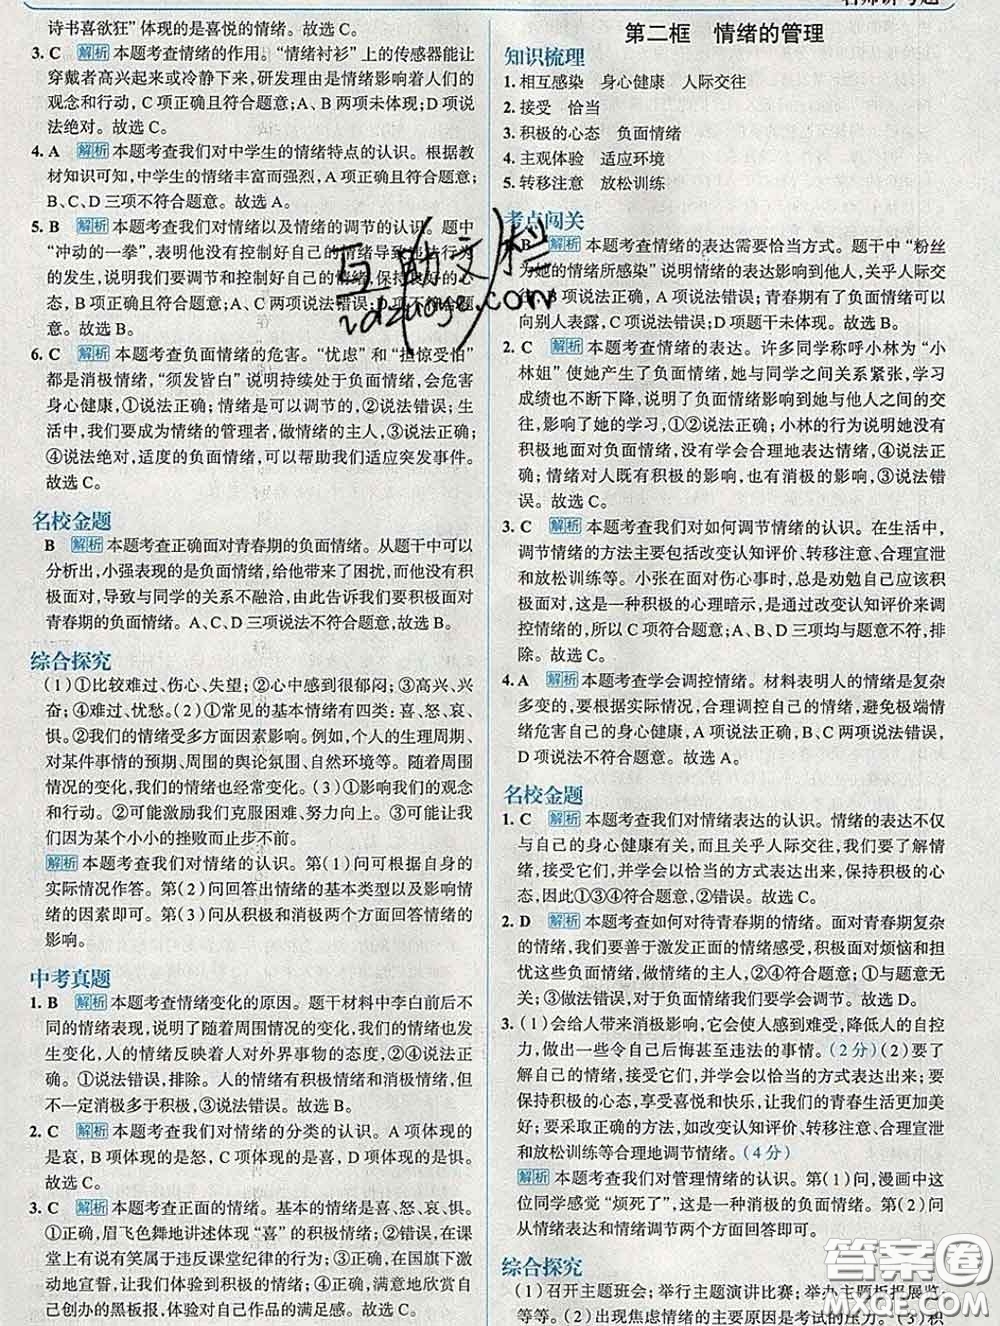 名师讲考题
诗书喜欲狂”体现的是喜悦的情绪。故选C。
3. C 解析 本题考查情绪的作用。“情绪衬衫”上的传感器能让
穿戴者高兴起来或冷静下来,研发理由是情绪影响着人们的
观念和行动,C项正确且符合题意;A、B两项未体现;D项说
法绝对。故选C。
4. A 解析 本题考查我们对中学生的情绪特点的认识。根据教
材知识可知,中学生的情绪丰富而强烈,A项正确且符合题意,
B、C、D三项不符合题意。故选A。
5. B 解析 本题考查我们对情绪以及情绪的调节的认识。题中
“冲动的一拳”,表明他没有控制好自己的情绪导致过激行为
的发生,说明我们要调节和控制好自己的情绪,保持良好的心
态,B项正确且符合题意;A、C两项说法错误;D项不符合题
意。故选B。
6. C 解析 本题考查负面情绪的危害。“忧虑”和“担惊受怕”
都是消极情绪,“须发皆白”说明持续处于负面情绪,会危害
身心健康,①说法正确;情绪是可以调节的,②说法错误;生
活中,我们要成为情绪的管理者,做情绪的主人,③说法正确;
④说法绝对,适度的负面情绪,可以帮助我们适应突发事件。
故选C。
名校金题
B 解析 本题考查正确面对青春期的负面情绪。从题干中可以
分析出,小强表现的是负面情绪,给他带来了困扰,而他没有积
极面对,导致与同学的关系不融洽,由此告诉我们要积极面对
青春期的负面情绪。A、C、D三项说法不符合题意,故选B。
综合探究
(1)①比较难过、伤心、失望;②心中感到很郁闷;③高兴、兴
奋;④难过、忧愁。(2)①常见的基本情绪有四类:喜、怒、哀、
惧。②我们的情绪受多方面因素影响。例如,个人的生理周期、
对某件事情的预期、周围的舆论氛围、自然环境等。随着周围
情况的变化,我们的情绪也经常变化。(3)①影响我们的观念
和行动。②可能激励我们克服困难、努力向上。③可能让我
们因为某个小小的挫败而止步不前。
解析 本题考查我们对情绪的认识。第(1)问可根据自身的
实际情况作答。第(2)问回答出情绪的基本类型以及影响情
绪的因素即可。第(3)问从积极和消极两个方面回答情绪的
影响。
中考真题
1. B 解析 本题考查情绪变化的原因。题干材料中李白前后不
同的情绪表现,说明了随着周围情况的变化,我们的情绪也发
生变化,人的情绪反映着人对外界事物的态度,②④说法正
确。①说法错误,排除。人的情绪有积极情绪和消极情绪,但
不一定消极多于积极,③说法错误。故选B。
2. C 解析 本题考查我们对情绪的分类的认识。A项体现的
是哀,B项体现的是怒,C项体现的是喜,D项体现的是惧。
故选C。
3. C 解析 本题考查正面的情绪。基本的情绪是喜、怒、哀、惧。
①正确,眉飞色舞地讲述体现“喜”的积极情绪;②错误,在课
堂上有说有笑属于违反课堂纪律的行为;③正确,在国旗下激
动地宣誓,让我们体验到积极情绪;④正确,满意地欣赏自己
自己创办的黑板报,体验对自己作品的满足感。故选C。
第二框 情绪的管理
知识梳理
1. 相互感染 身心健康 人际交往
2. 接受 恰当
3. 积极的心态 负面情绪
4. 主观体验 适应环境
5. 转移注意 放松训练
考点闯关
1. B 解析 本题考查情绪的表达需要恰当方式。题干中“粉丝
为她的情绪所感染”说明情绪的表达影响到他人,关乎人际交
往,B项说法正确,A项说法错误;青春期有了负面情绪可以
向别人表露,C项说法错误;D项题干未体现。故选B。
2. C 解析 本题考查情绪的表达。许多同学称呼小林为“小
林姐”使她产生了负面情绪,她与同学之间关系紧张,学习
成绩也不断下降,说明了负面情绪影响到她与他人之间的交
往,影响了她的学习,①②说法正确;小林的行为说明她没有
积极地面对负面情绪,没有学会合理地表达情绪,④说法正
确;情绪对人既有积极的影响,也有消极的影响,③说法错
误。故选C。
3. C 解析 本题考查我们对如何调节情绪的认识。在生活中,
调节情绪的方法主要包括改变认知评价、转移注意、合理宣泄
和放松训练等。小张在面对伤心事时,总是劝勉自己应该积
极面对,这是一种积极的心理暗示,是通过改变认知评价来调
控情绪的,所以C项符合题意;A、B、D三项均与题意不符,排
除。故选C。
4. A 解析 本题考查学会调控情绪。材料表明人的情绪是复杂
多变的,要根据实际情况,合理调控自己的情绪,避免极端情
绪危害自己的身心健康,A项符合题意;B、C两项说法错误,
D项说法不符合题意。故选A。
名校金题
1. C 解析 本题考查我们对情绪表达的认识。情绪的表达不仅
与自己的身心健康有关,而且关乎人际交往,我们要了解情
绪,接受它们,并学会以恰当的方式表达出来,保持积极的心
态,因此①③④符合题意,②错误。故选C。
2. D 解析 本题考查如何对待青春期的情绪。面对青春期复杂
的情绪,我们要善于激发正面的情绪感受,积极面对烦恼和担
忧这些负面情绪,做情绪的主人,②④符合题意。①说法错
误;③做法错误,对于负面情绪我们要学会调节。故选D。
3. (1)会给人带来消极影响,它会使人感到难受,降低人的自控
力,做出一些令自己后悔甚至违法的事情。(2分)(2)要了
解自己的情绪,接受它们,并学会以恰当的方式表达出来;要
保持积极的心态,享受喜悦和快乐,让我们的青春生活更加美
好;要采取正确的方法,如改变认知评价、转移注意、合理宣泄、
放松训练等合理地调节情绪。(4分)
解析 本题考查我们对管理情绪的认识。第(1)问,漫画中这
位同学感觉“烦死了”,这是一种消极的负面情绪。第(2)问
从情绪表达和情绪调节两个方面回答即可。
综合探究
(1)召开主题班会;举行主题演讲比赛;举办主题板报展览,
等等。(2)出现焦虑情绪的主要原因是考试的压力。(3)积
答案圈
MXQE.COM